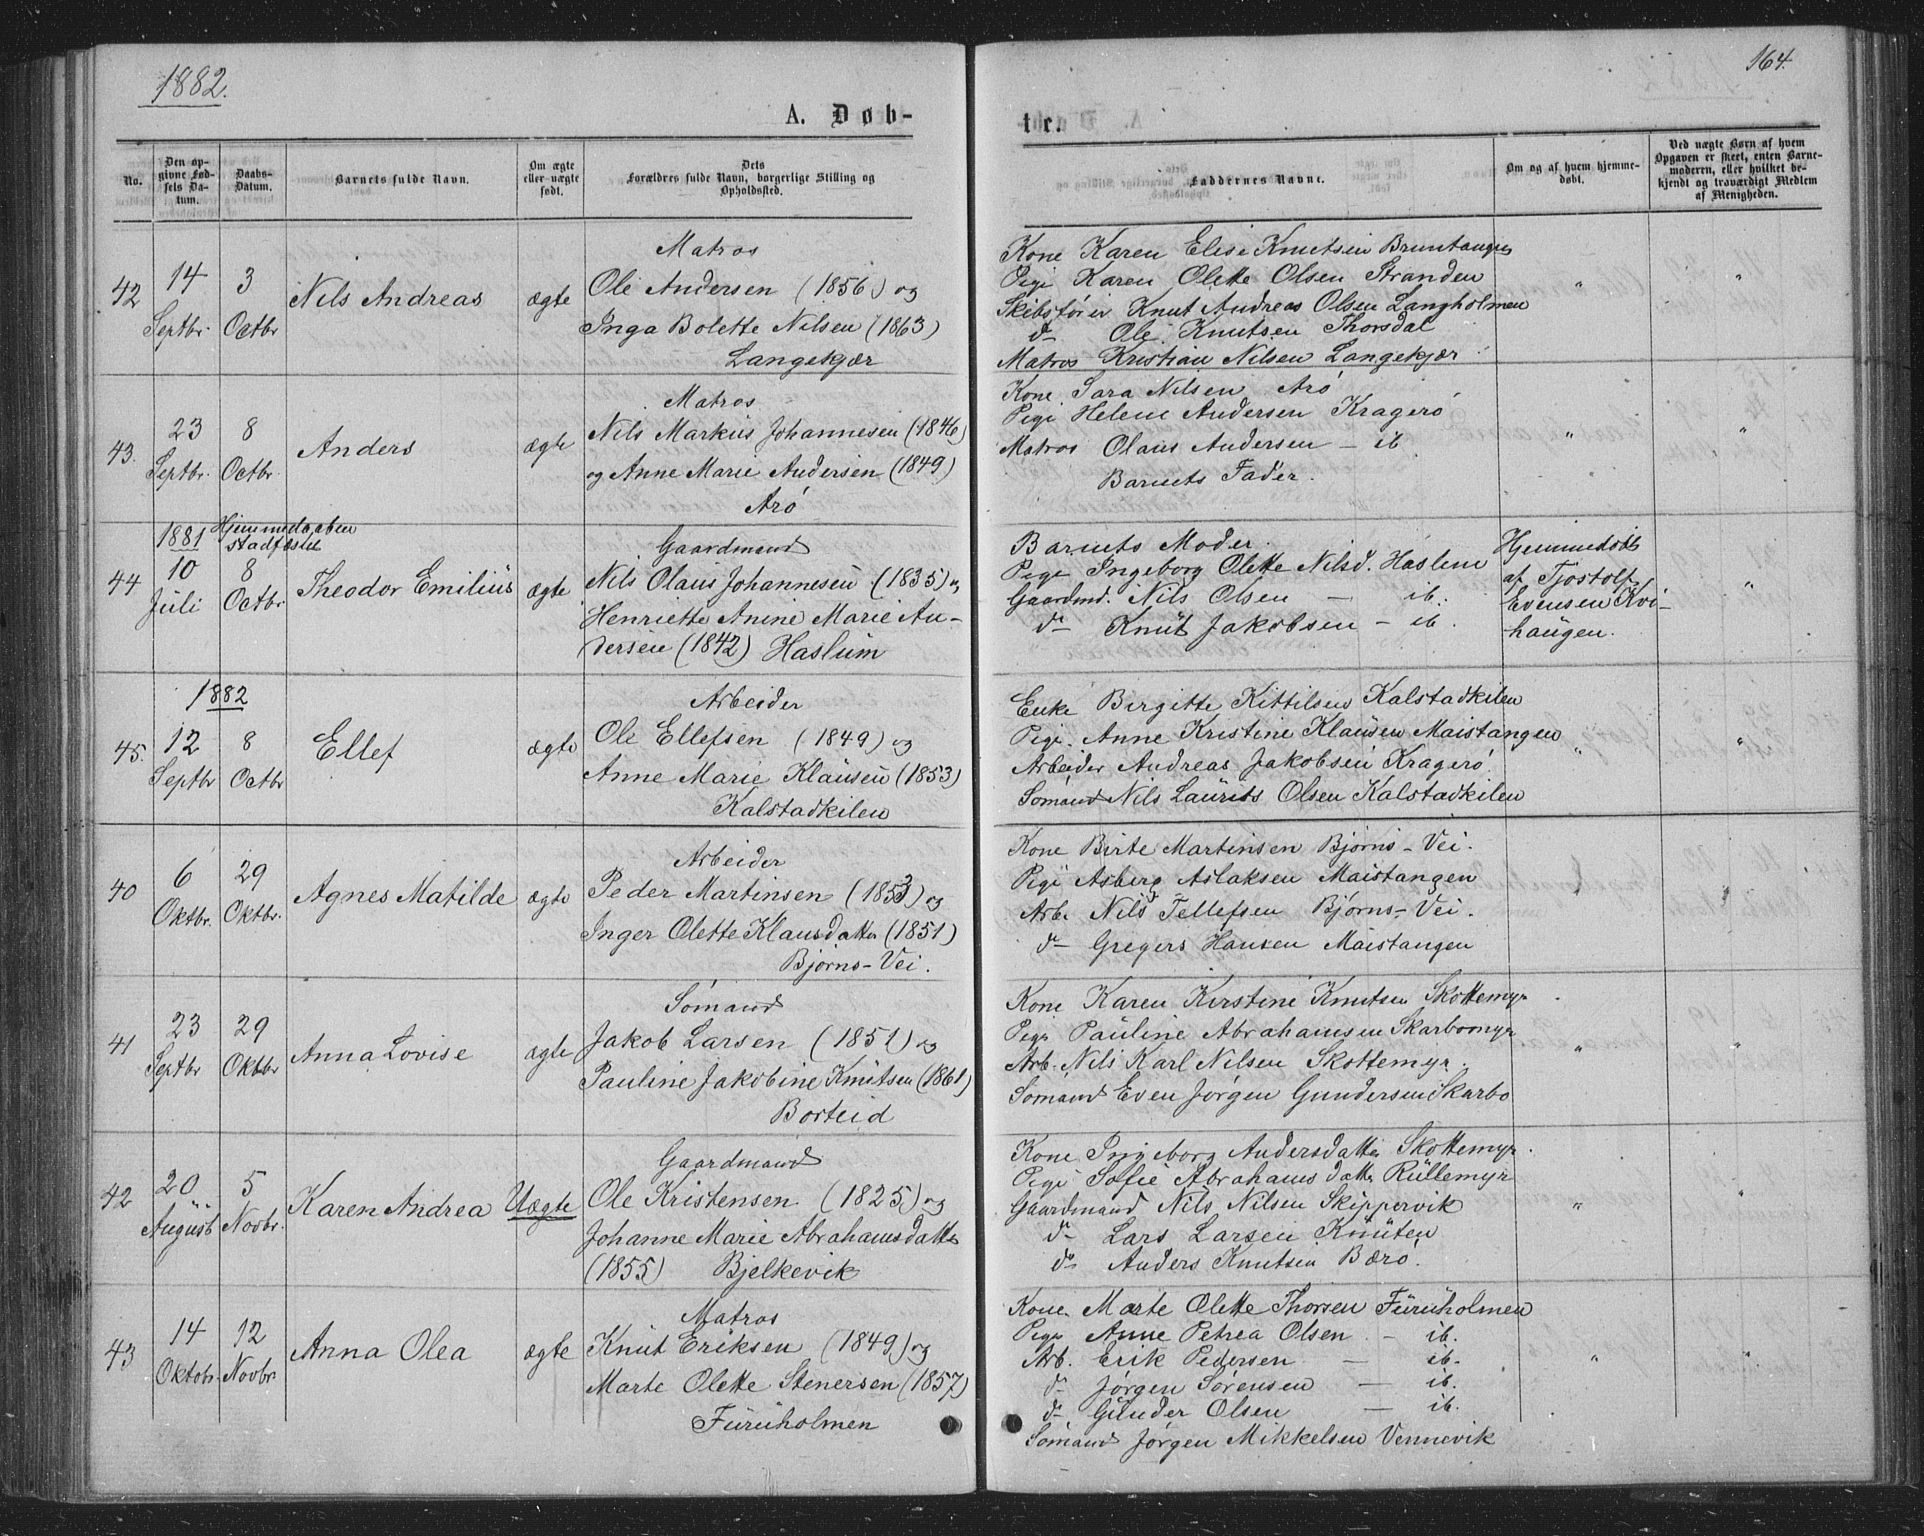 1882.
164.
A. Døb-
te.
No.
Den op-
givne Fød-
sels Da-
tum.
Daabs-
Datum.
Barnets fulde Navn.
Om ægte
eller uægte
født.
Dets
Forældres fulde Navn, borgerlige Stilling og
Opholdssted.
Faddernes Navne.
Om og af hvem hjemme-
døbt.
Ved uægte Børn af hvem
Opgaven er skeet, enten Barne-
moderen, eller hvilket be-
kjendt og troværdigt Medlem
af Menigheden.
42
14
Septbr.
3
Octbr
Nils Andreas
ægte
Matros
Ole Andersen (1856) og
Inga Bolette Nilsen (1863)
Langekjær
Kone Karen Elise Knutsen Bruntangen
Pige Karen Olette Olsen Stranden
Skibsfører Knut Andreas Olsen Langholmen
do Ole Knutsen Thorsdal
Matros Kristian Nilsen Langekjær
"
"
43.
23
Septbr.
8
Octbr.
Anders
ægte
Matros
Nils Markus Johannesen (1846)
og Anne Marie Andersen (1849)
Arö
Kone Sara Nilsen Arö
Pige Helene Andersen Kragerö
Matros Olaus Andersen – ib.
Barnets Fader.
"
"
44
1881
10
Juli
Hjemmedaaben
stadfæstet
8
Octbr
Theodor Emilius
ægte
Gaardmand
Nils Olaus Johannesen (1835) og
Henriette Anine Marie An-
dersen (1842) Haslum
Barnets Moder.
Pige Ingeborg Olette Nilsd. Haslum
Gaardmd. Nils Olsen – ib.
do Knut Jakobsen – ib.
Hjemmedøbt
af Tjostolf
Evensen Kvi-
haugen.
"
1882
45.
12
Septbr
8
Octbr
Ellef
ægte
Arbeider
Ole Ellefsen (1849) og
Anne Marie Klausen (1853)
Kalstadkilen
Enke Birgitte Kittilsen Kalstadkilen
Pige. Anne Kristine Klausen Maistangen
Arbeider Andreas Jakobsen Kragerö
Sömand Nils Laurits Olsen Kalstadkilen
"
"
40
6
Oktbr.
29
Oktbr.
Agnes Matilde
ægte
Arbeider
Peder Martinsen (1853) og
Inger Olette Klausdatter (1851)
Bjørns-Vei.
Kone Birte Martinsen Bjørns-Vei.
Pige Asberg Aslaksen Maistangen
Arb. Nils Tellefsen Bjørns-Vei.
do Gregers Hansen Maistangen
"
"
41
23
Septbr
29
Oktbr
Anna Lovise
ægte
Sömand
Jakob Larsen (1851) og
Pauline Jakobine Knutsen (1861)
Borteid
Kone Karen Kirstine Knutsen Skottemyr
Pige Pauline Abrahamsen Skarbomyr
Arb. Nils Karl Nilsen Skottemyr.
Sömand Even Jørgen Gundersen Skarbo
"
"
42
20
August
5
Novbr.
Karen Andrea
Uægte
Gaardmand
Ole Kristensen (1825) og
Johanne Marie Abrahamsdatter
(1855) Bjelkevik
Kone Ingeborg Andersdatter Skottemyr.
Pige Sofie Abrahamsdatter Rullemyr
Gaardmand Nils Nilsen Skippervik
do Lars Larsen Knuten
do Anders Knutsen Bærö.
"
"
43
14
Oktobr.
12
Novbr.
Anna Olea
ægte
Matros
Knut Eriksen (1849) og
Marte Olette Stenersen (1857)
Furuholmen
Kone Marte Olette Thorsen Furuholmen
Pige Anne Petrea Olsen – ib.
Arb. Erik Pedersen – ib.
do Jørgen Sørensen – ib.
do Gunder Olsen – ib.
Sömand Jørgen Mikkelsen Vennevik
"
"